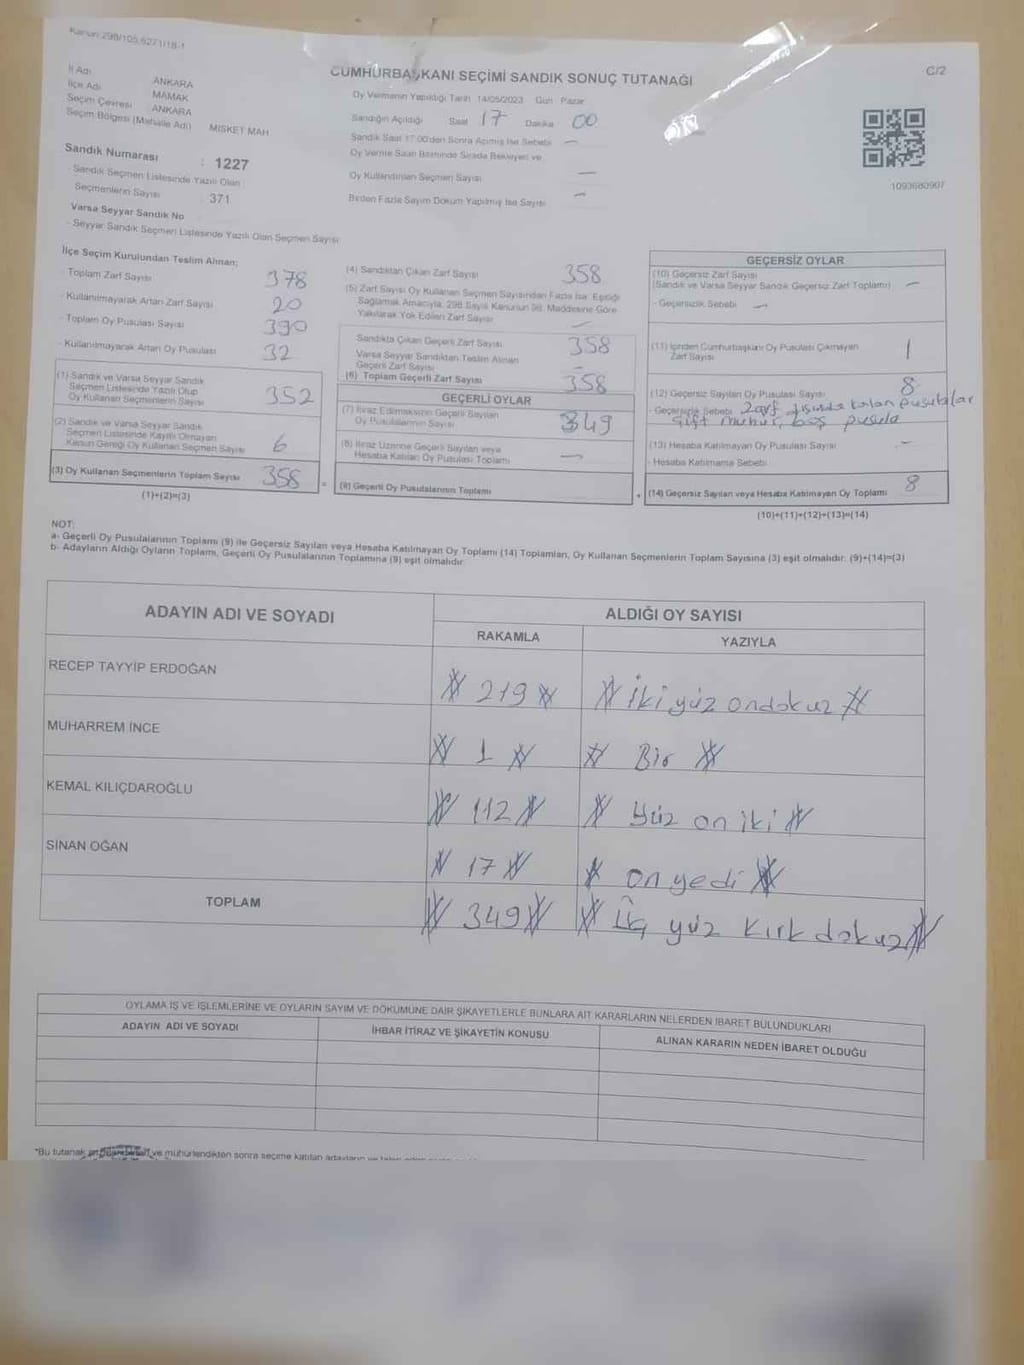 Kanun 298/105,6271/18-1
C/2
CUMHURBAŞKANI SEÇİMİ SANDIK SONUÇ TUTANAĞI
İl Adı ANKARA
İlçe Adı MAMAK
Seçim Çevresi ANKARA
Seçim Bölgesi (Mahalle Adı) MISKET MAH
Sandık Numarası : 1227
Sandık Seçmen Listesinde Yazılı Olan
Seçmenlerin Sayısı : 371
Varsa Seyyar Sandık No
- Seyyar Sandık Seçmen Listesinde Yazılı Olan Seçmen Sayısı
Oy Vermenin Yapıldığı Tarih 14/05/2023 Gün Pazar
Sandığın Açıldığı Saat 17 Dakika 00
Sandık Saat 17:00'den Sonra Açılmış İse Sebebi —
Oy Verme Saati Bitiminde Sırada Bekleyen ve
Oy Kullandırılan Seçmen Sayısı —
Birden Fazla Sayım Döküm Yapılmış İse Sayısı —
1093680907
İlçe Seçim Kurulundan Teslim Alınan;
- Toplam Zarf Sayısı 378
- Kullanılmayarak Artan Zarf Sayısı 20
- Toplam Oy Pusulası Sayısı 390
- Kullanılmayarak Artan Oy Pusulası 32
(1) Sandık ve Varsa Seyyar Sandık
Seçmen Listesinde Yazılı Olup
Oy Kullanan Seçmenlerin Sayısı 352
(2) Sandık ve Varsa Seyyar Sandık
Seçmen Listesinde Kayıtlı Olmayan
Kanun Gereği Oy Kullanan Seçmen Sayısı 6
(3) Oy Kullanan Seçmenlerin Toplam Sayısı 358
(1)+(2)=(3)
(4) Sandıktan Çıkan Zarf Sayısı 358
(5) Zarf Sayısı Oy Kullanan Seçmen Sayısından Fazla İse, Eşitliği
Sağlamak Amacıyla, 298 Sayılı Kanunun 98. Maddesine Göre
Yakılarak Yok Edilen Zarf Sayısı —
Sandıkta Çıkan Geçerli Zarf Sayısı 358
Varsa Seyyar Sandıktan Teslim Alınan
Geçerli Zarf Sayısı —
(6) Toplam Geçerli Zarf Sayısı 358
GEÇERLİ OYLAR
(7) İtiraz Edilmeksizin Geçerli Sayılan
Oy Pusulalarının Sayısı 349
(8) İtiraz Üzerine Geçerli Sayılan veya
Hesaba Katılan Oy Pusulası Toplamı —
(9) Geçerli Oy Pusulalarının Toplamı
GEÇERSİZ OYLAR
(10) Geçersiz Zarf Sayısı
(Sandık ve Varsa Seyyar Sandık Geçersiz Zarf Toplamı) —
- Geçersizlik Sebebi —
(11) İçinden Cumhurbaşkanı Oy Pusulası Çıkmayan
Zarf Sayısı 1
(12) Geçersiz Sayılan Oy Pusulası Sayısı 8
- Geçersizlik Sebebi zarf dışında kalan pusulalar
Çift mühür, boş pusula
(13) Hesaba Katılmayan Oy Pusulası Sayısı —
- Hesaba Katılmama Sebebi
(14) Geçersiz Sayılan veya Hesaba Katılmayan Oy Toplamı 8
(10)+(11)+(12)+(13)=(14)
NOT:
a- Geçerli Oy Pusulalarının Toplamı (9) ile Geçersiz Sayılan veya Hesaba Katılmayan Oy Toplamı (14) Toplamları, Oy Kullanan Seçmenlerin Toplam Sayısına (3) eşit olmalıdır. (9)+(14)=(3)
b- Adayların Aldığı Oyların Toplamı, Geçerli Oy Pusulalarının Toplamına (9) eşit olmalıdır.
ADAYIN ADI VE SOYADI ALDIĞI OY SAYISI
RAKAMLA YAZIYLA
RECEP TAYYİP ERDOĞAN 219 İki yüz ondokuz
MUHARREM İNCE 1 Bir
KEMAL KILIÇDAROĞLU 112 Yüz on iki
SİNAN OĞAN 17 on yedi
TOPLAM 349 Üç yüz kırk dokuz
OYLAMA İŞ VE İŞLEMLERİNE VE OYLARIN SAYIM VE DÖKÜMÜNE DAİR ŞİKAYETLERLE BUNLARA AİT KARARLARIN NELERDEN İBARET BULUNDUKLARI
ADAYIN ADI VE SOYADI İHBAR İTİRAZ VE ŞİKAYETİN KONUSU ALINAN KARARIN NEDEN İBARET OLDUĞU
*Bu tutanak ve mühürlendikten sonra seçime katılan adayların